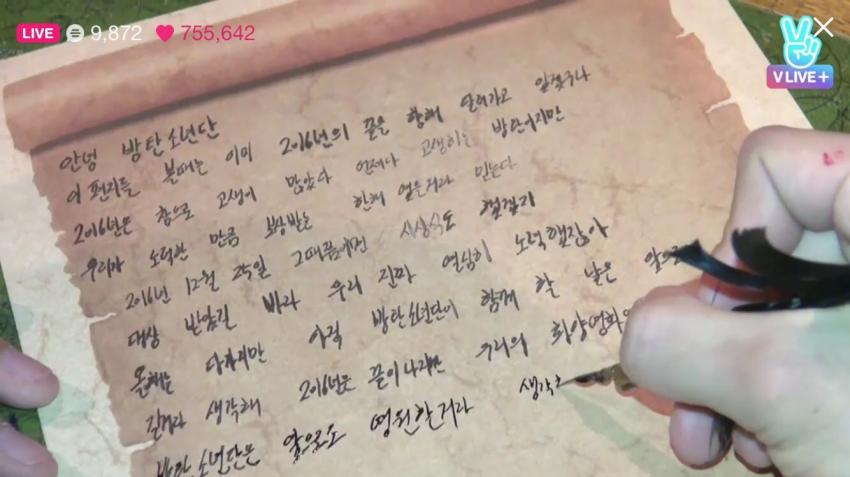 LIVE 9,872 755,642
V LIVE+
안녕 방탄소년단
이 편지를 볼때는 이미 2016년의 끝을 향해 달려가고 있겠구나
2016년은 참으로 고생이 많았다 언제나 고생하는 방탄이지만
우리가 노력한 만큼 보상받는 한해 였을거라 믿는다
2016년 12월 25일 그때쯤이면 시상식도 했겠지
대상 받았길 바라 우리 진짜 열심히 노력했잖아
올해는 다가지만 아직 방탄소년단이 함께 할 날은 앞으로
길거라 생각해 2016년은 끝이나지만 우리의 화양연화
방탄소년단은 앞으로도 영원할거라 생각